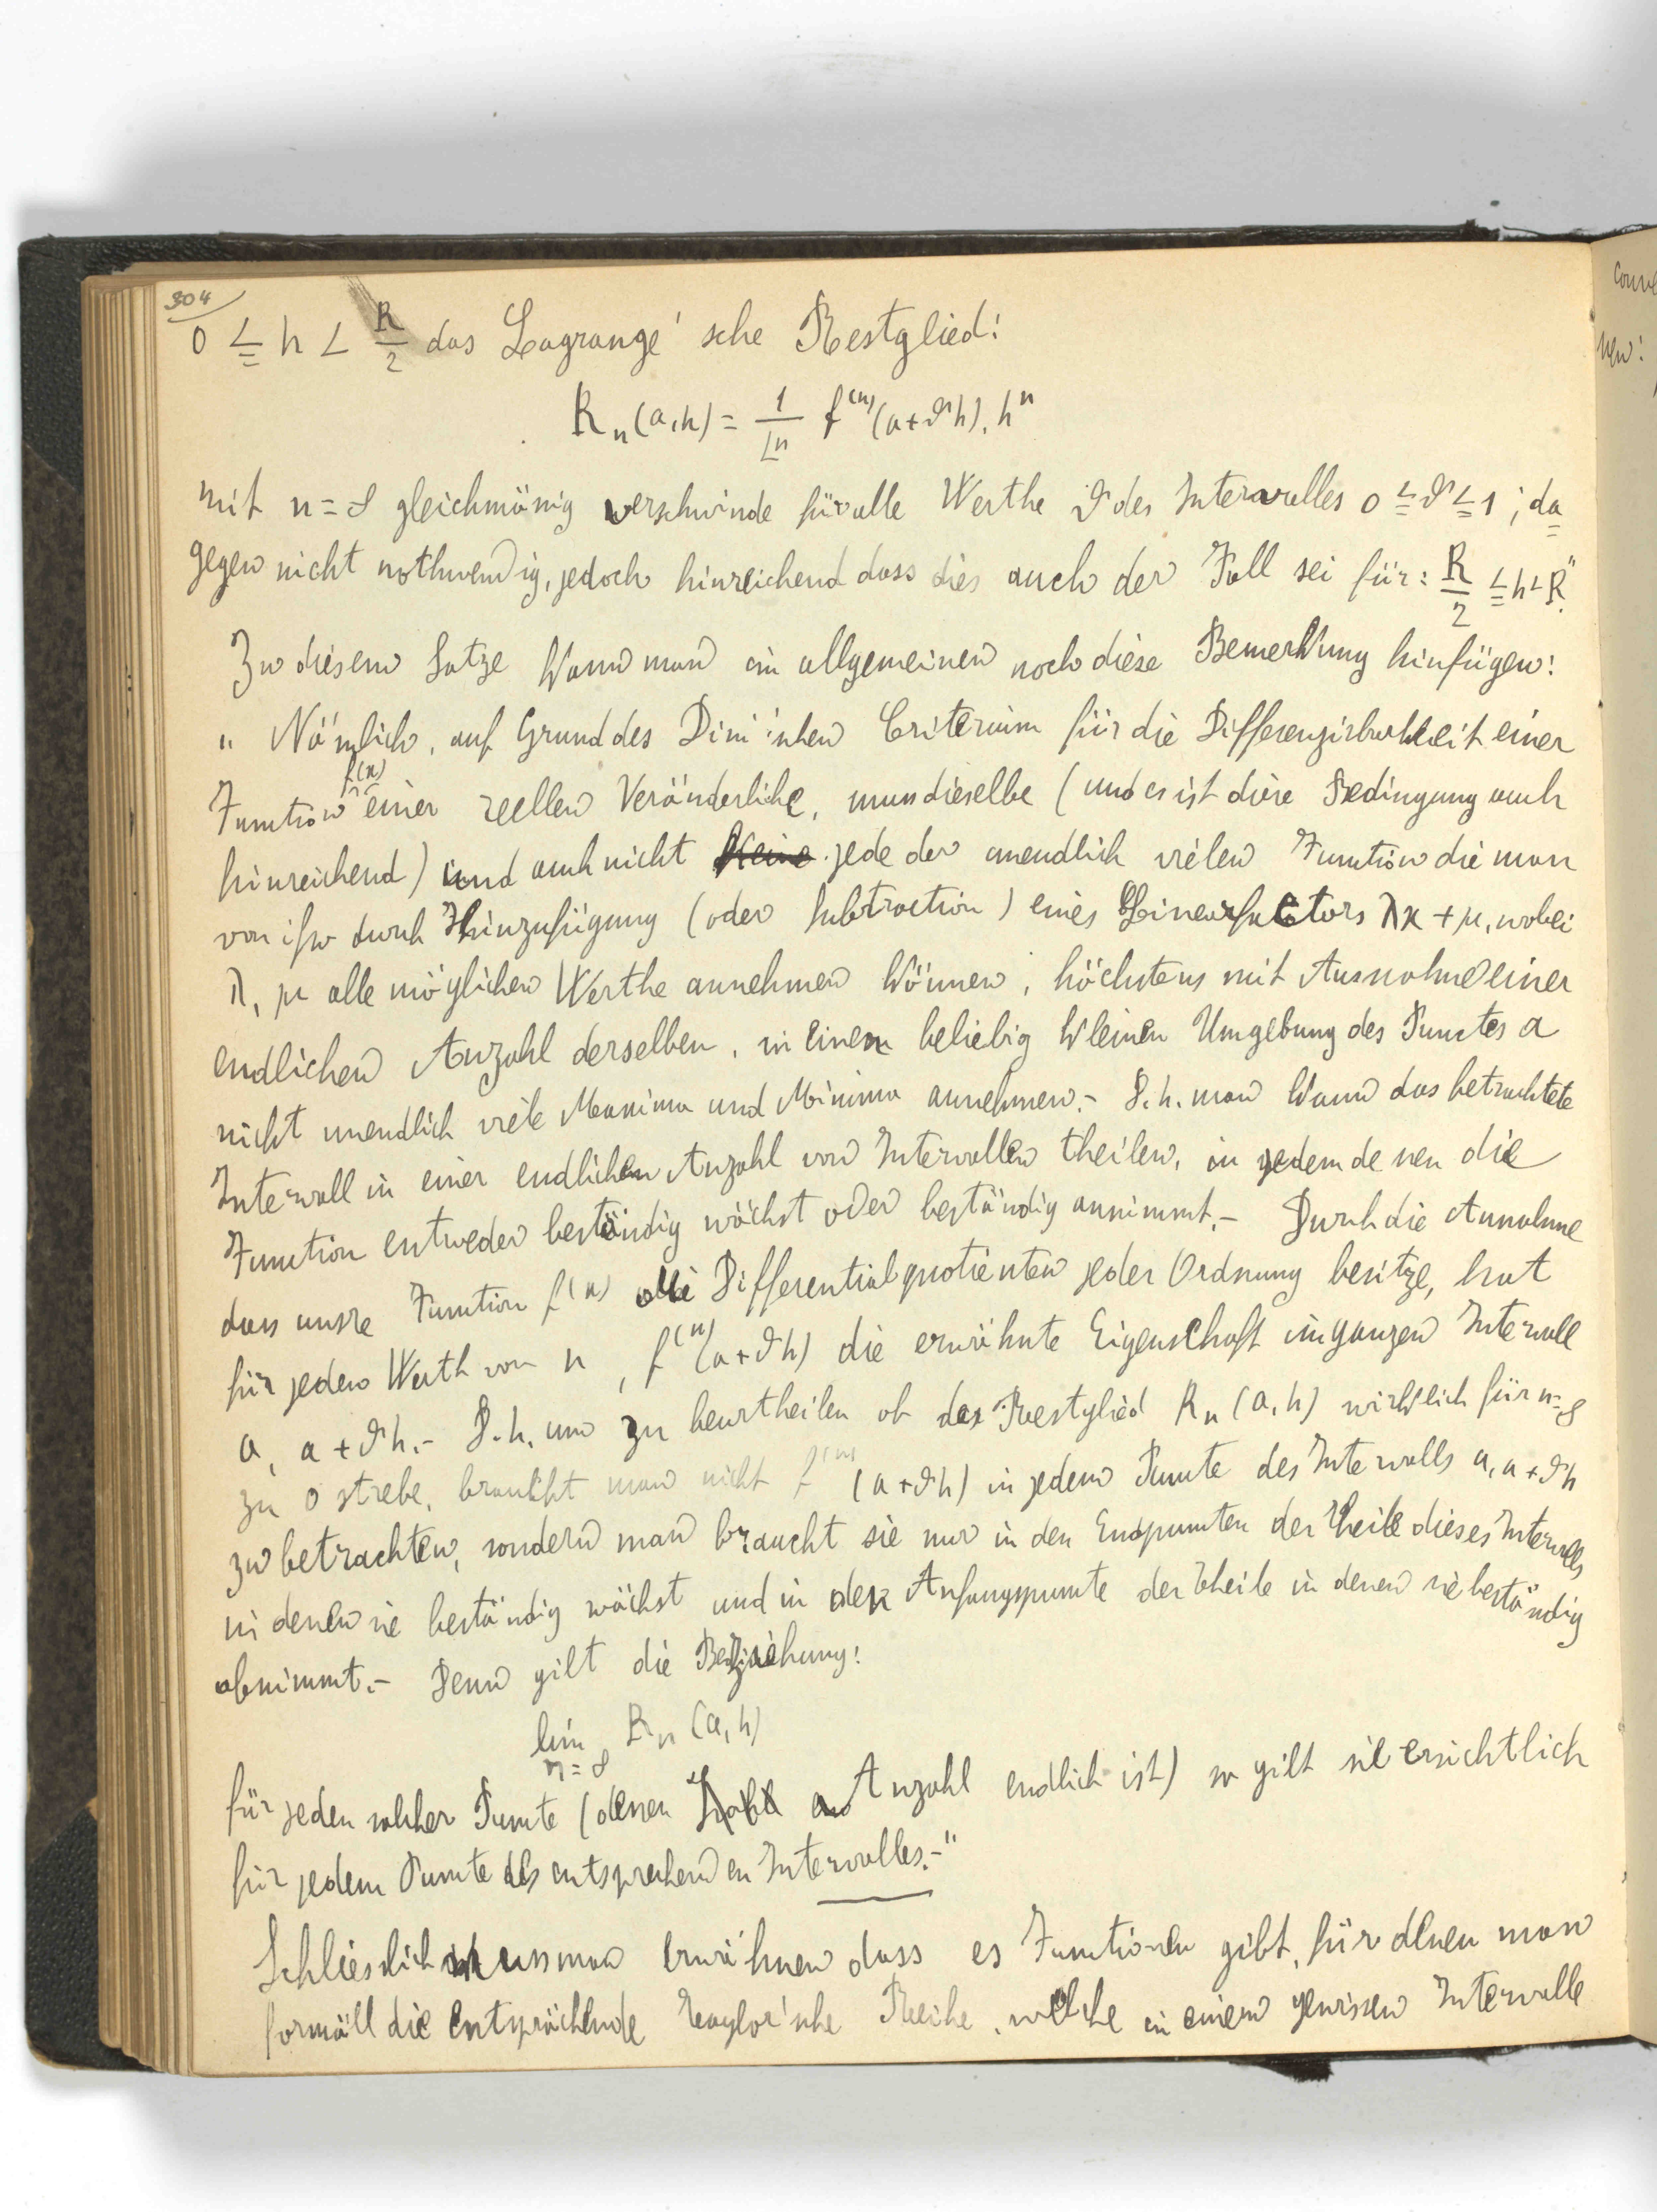 304
0 ≦ h < R/2 das Lagrange'sche Restglied:
R_n(a,h) = 1/⌊n f^(n)(a+ϑh).h^n
mit n=∞ gleichmässig verschwinde für alle Werthe ϑ des Intervalles 0≦ϑ≦1; da=
gegen nicht nothwendig, jedoch hinreichend dass dies auch der Fall sei für: R/2 ≦h<R."
Zu diesem Satze kann man im allgemeinen noch diese Bemerkung hinfügen:
„ Nämlich, auf Grund des Dini'schen Criterium für die Differenzirbarkeit einer
Function f(x) einer reellen Veränderliche, muss dieselbe (und es ist diese Bedingung auch
hinreichend) und auch nicht keine jede der unendlich vielen Function die man
von ihr durch Hinzufügung (oder Subtraction) eines Linearfactors λx+μ, wobei
λ, μ alle möglichen Werthe annehmen können, höchstens mit Ausnahme einer
endlichen Anzahl derselben, in einem beliebig kleinen Umgebung des Punctes a
nicht unendlich viele Maxima und Minima annehmen.- D.h. man kann das betrachtete
Intervall in einer endlichen Anzahl von Intervallen theilen, in jedem denen die
Function entweder beständig wächst oder beständig annimmt.- Durch die Annahme
dass unsre Function f(x) alle Differentialquotienten jeder Ordnung besitze, hat
für jeden Werth von n, f^(n)(a+ϑh) die erwähnte Eigenschaft im ganzen Intervall
a, a+ϑh.- D.h. um zu beurtheilen ob das Restglied R_n(a,h) wirklich für n=∞
zu 0 strebe, braucht man nicht f^(n)(a+ϑh) in jedem Puncte des Intervalls a, a+ϑh
zu betrachten, sondern man braucht sie nur in den Endpuncten der Theile dieses Intervalls
in denen sie beständig wächst und in den Anfangspuncte der Theile in denen sie beständig
abnimmt.- Denn gilt die Beziehung:
lim n=∞ R_n(a,h)
für jeden solcher Puncte (denen Zahl Anzahl endlich ist) so gilt sie ersichtlich
für jedem Puncte des entsprechenden Intervalles.-"
Schliesslich muss man erwähnen dass es Functionen gibt, für denen man
formäll die entsprächende Taylor'sche Reihe, welche in einem gewissen Intervalle